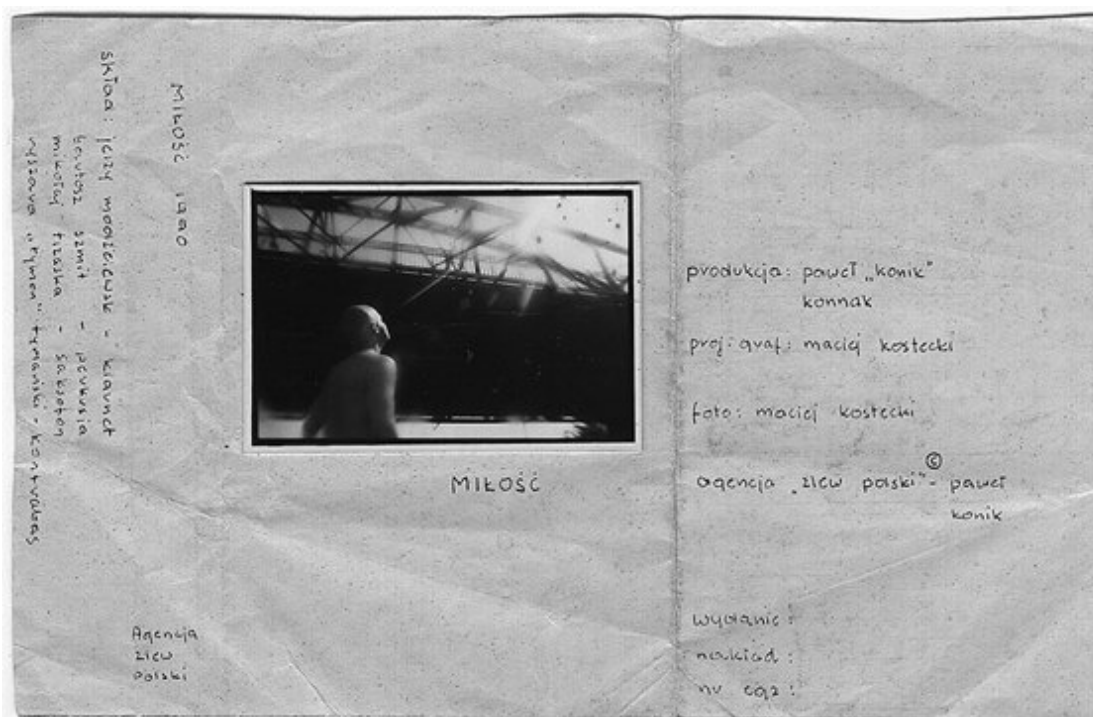 MIŁOŚĆ 1990
skład: jerzy mazolewski - klarnet
bartosz szmit - perkusja
mikołaj trzaska - saksofon
ryszard „tymon" tymański - kontrabas
Agencja
zlew
polski
MIŁOŚĆ
produkcja: paweł „konik"
konnak
proj. graf: maciej kostecki
foto: maciej kostecki
©
agencja „zlew polski" - paweł
konik
wydanie:
nakład:
nr egz: